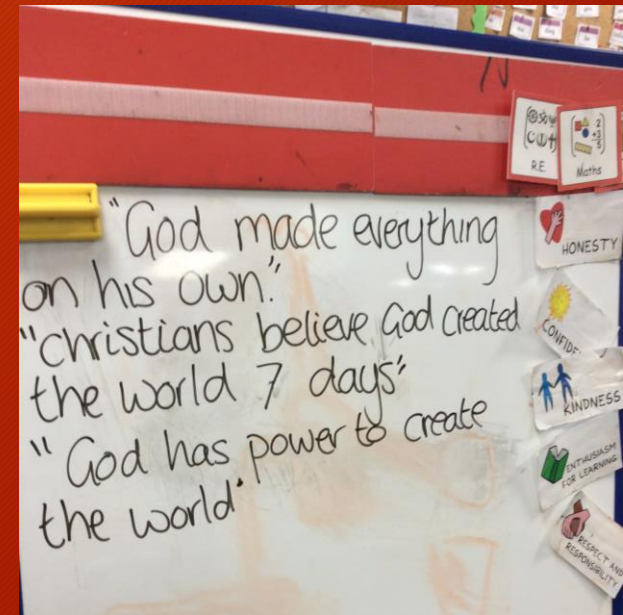 "God made everything
on his own."
"christians believe God created
the world 7 days"
" God has power to create
the world"
R.E.
Maths
2
+3
5
HONESTY
CONFIDE
KINDNESS
ENTHUSIASM
FOR LEARNING
RESPECT AND
RESPONSIBILITY